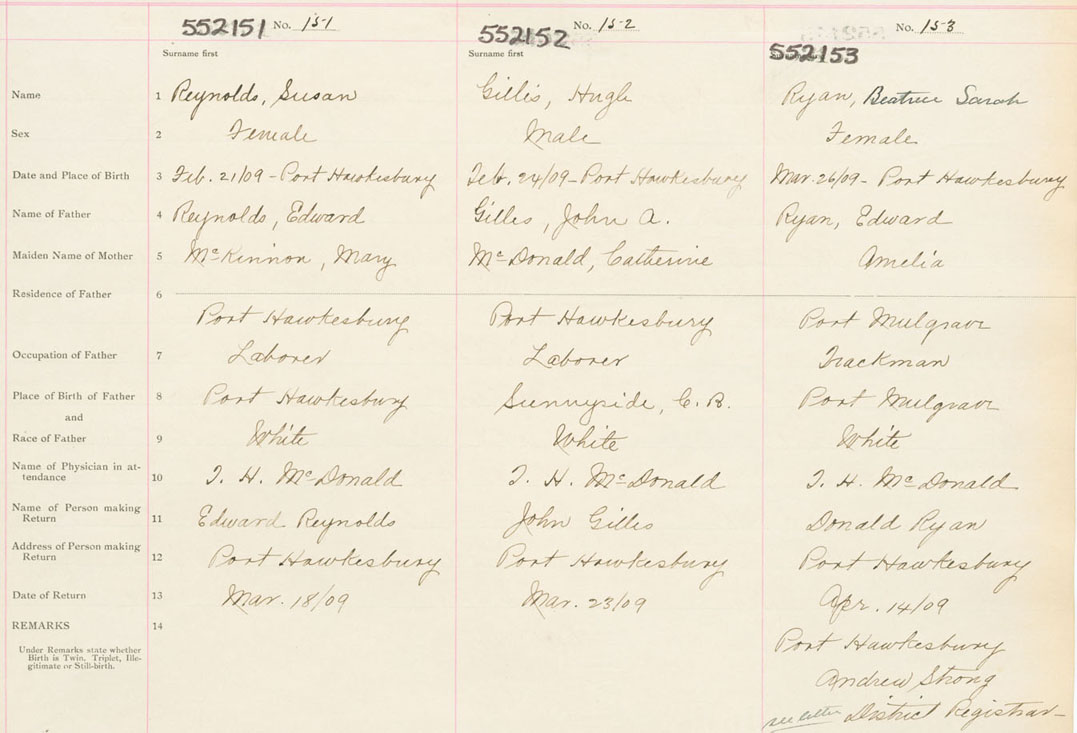 552151 No. 151 552152 No. 152 552153 No. 153
Surname first Surname first
Name 1 Reynolds, Susan Gillis, Hugh Ryan, Beatrice Sarah
Sex 2 Female Male Female
Date and Place of Birth 3 Feb. 21/09 - Port Hawkesbury Feb. 24/09 - Port Hawkesbury Mar. 26/09 - Port Hawkesbury
Name of Father 4 Reynolds, Edward Gillis, John A. Ryan, Edward
Maiden Name of Mother 5 McKinnon, Mary McDonald, Catherine Amelia
Residence of Father 6
Port Hawkesbury Port Hawkesbury Port Mulgrave
Occupation of Father 7 Laborer Laborer Trackman
Place of Birth of Father 8 Port Hawkesbury Sunnyside, C. B. Port Mulgrave
and
Race of Father 9 White White White
Name of Physician in at-
tendance 10 T. H. McDonald T. H. McDonald T. H. McDonald
Name of Person making
Return 11 Edward Reynolds John Gillis Donald Ryan
Address of Person making
Return 12 Port Hawkesbury Port Hawkesbury Port Hawkesbury
Date of Return 13 Mar. 18/09 Mar. 23/09 Apr. 14/09
REMARKS 14
Port Hawkesbury
Under Remarks state whether
Birth is Twin, Triplet, Ille-
gitimate or Still-birth.
Andrew Strong
see letter District Registrar